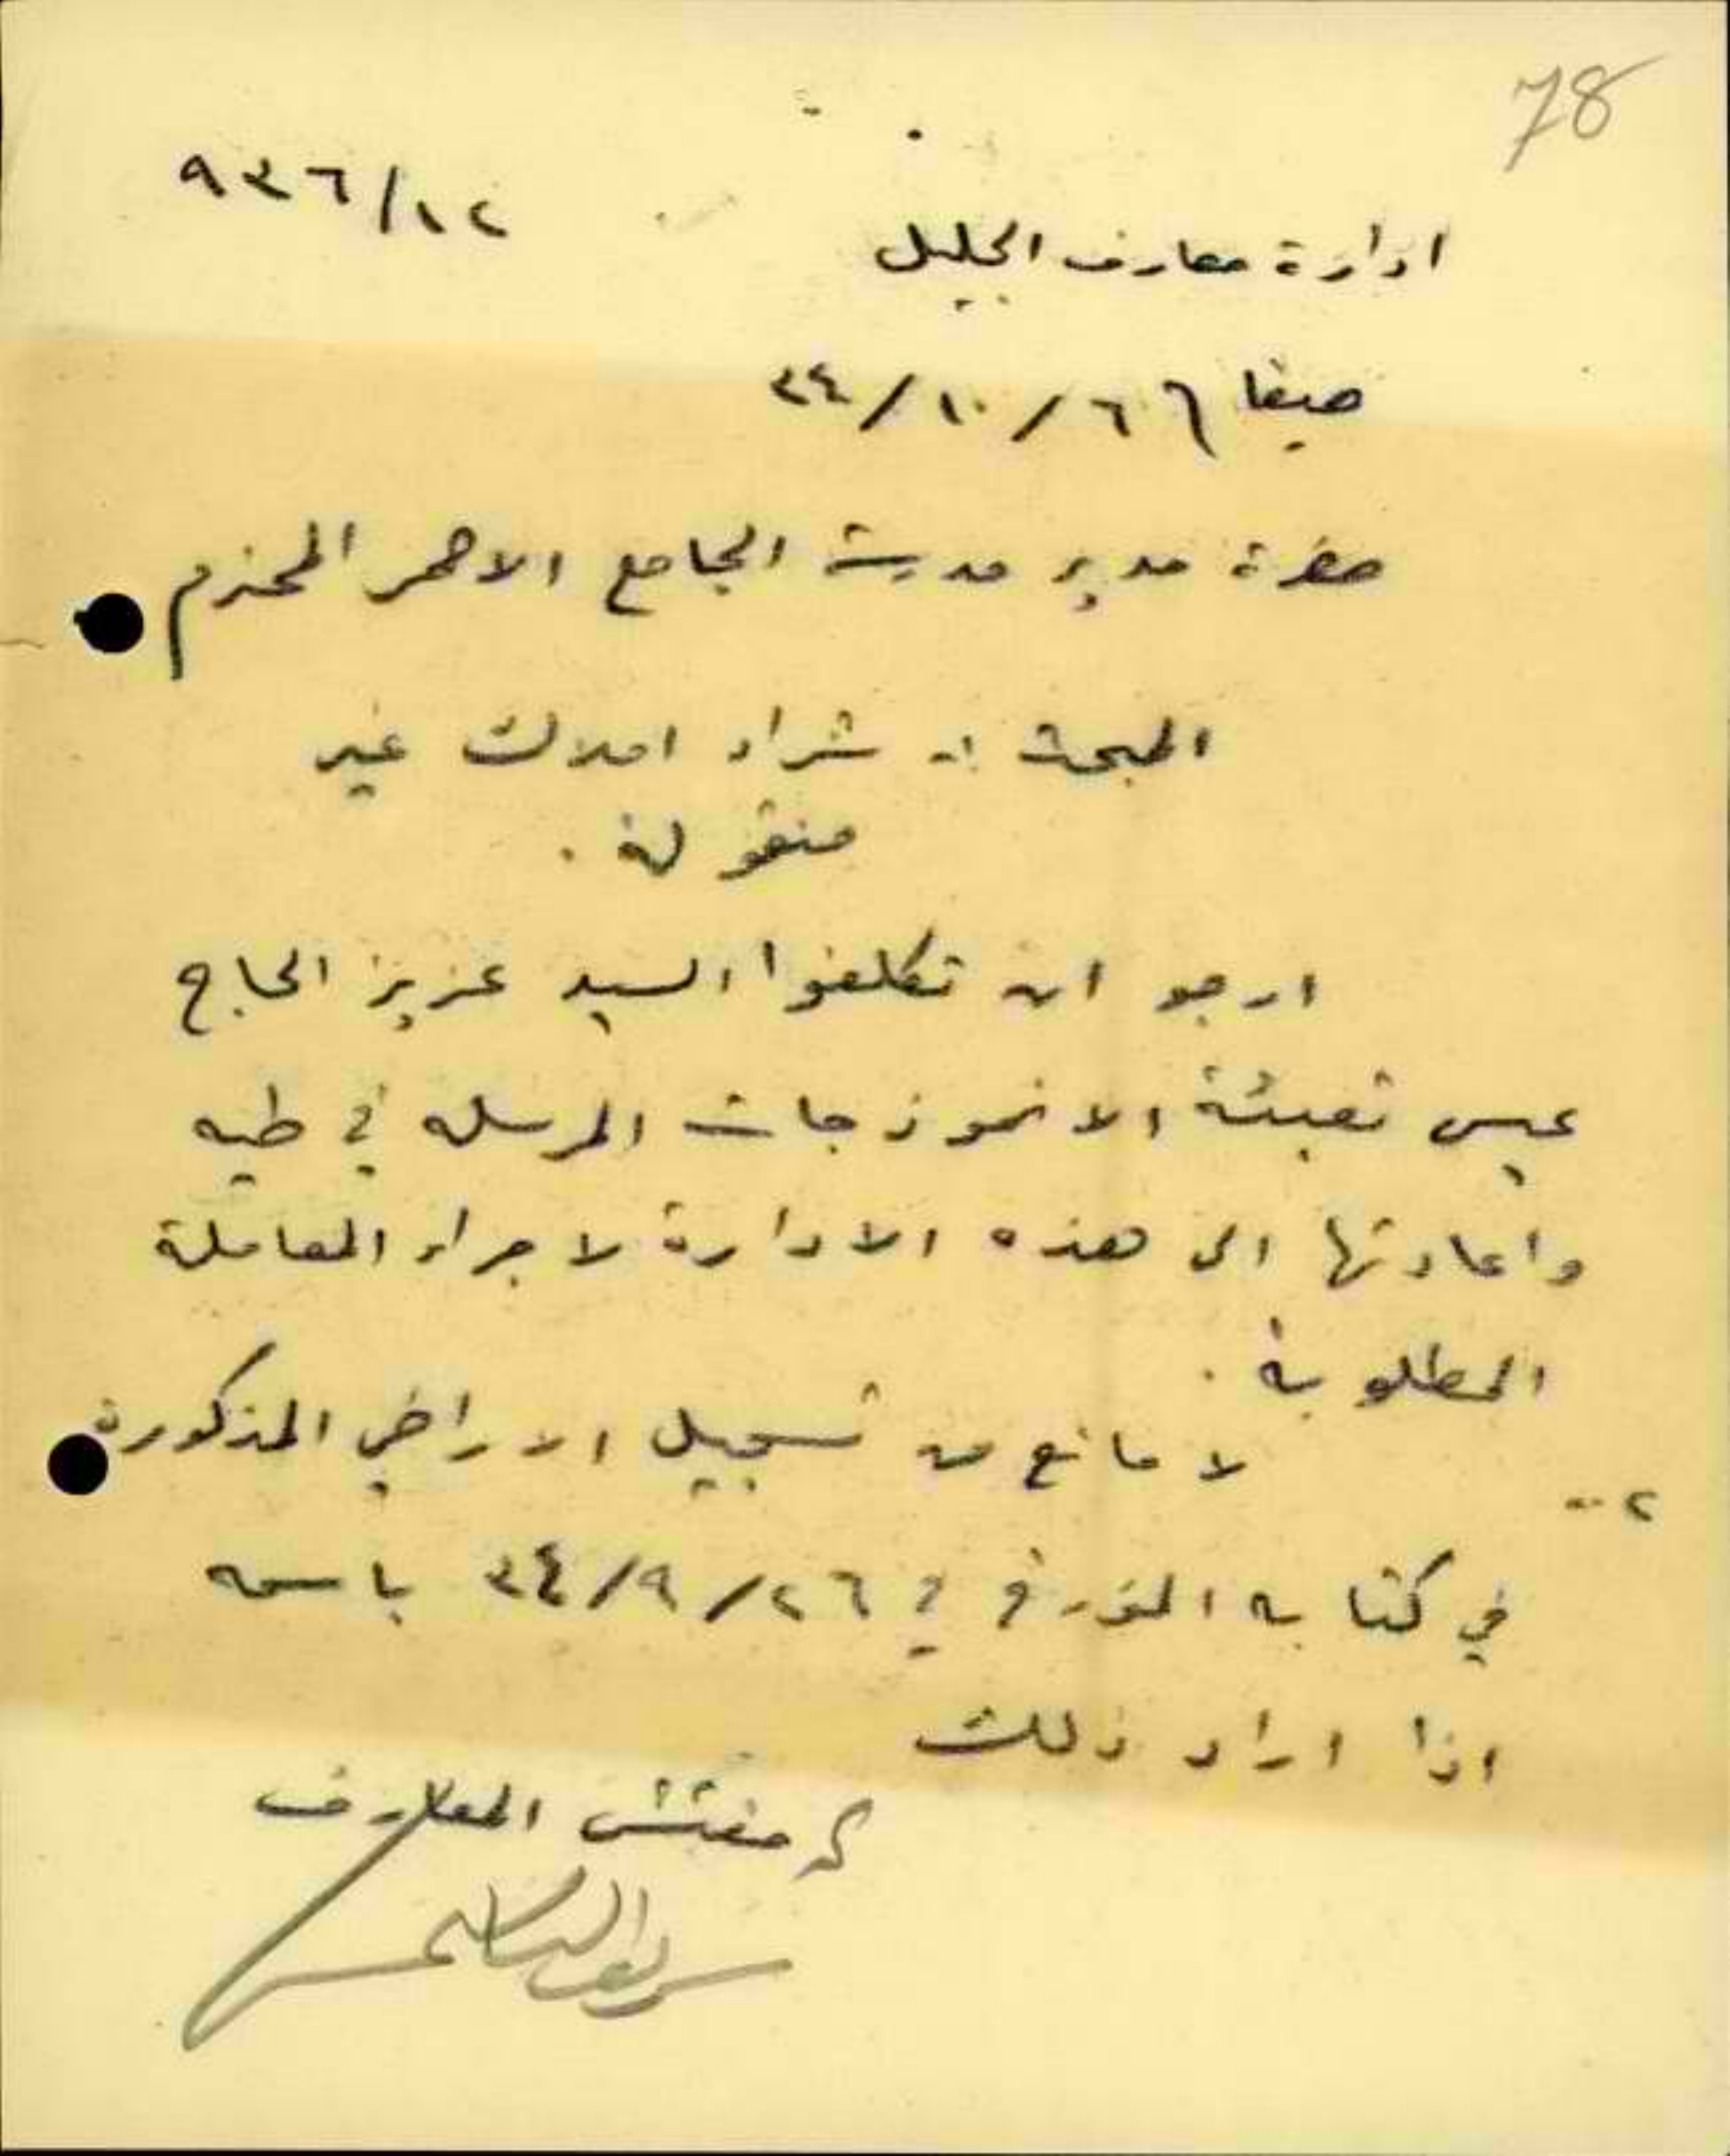 78
٩٣٦/١٢
ادارة معارف الجليل
حيفا في ٦/١٠/٣٤
حضرة مدير مدرسة الجامع الاحمر المحترم
المبحث :- شراء املاك غير
منقولة .
ارجو ان تكلفوا السيد عزيز الحاج
عيسى تعبئة الانموذجات المرسله في طيه
واعادتها الى هذه الادارة لاجراء المعاملة
المطلوبة .
٢-- لا مانع من تسجيل الاراضي المذكورة
في كتابه المؤرخ في ٢٦/٩/٣٤ باسمه
اذا اراد ذلك
مفتش المعارف